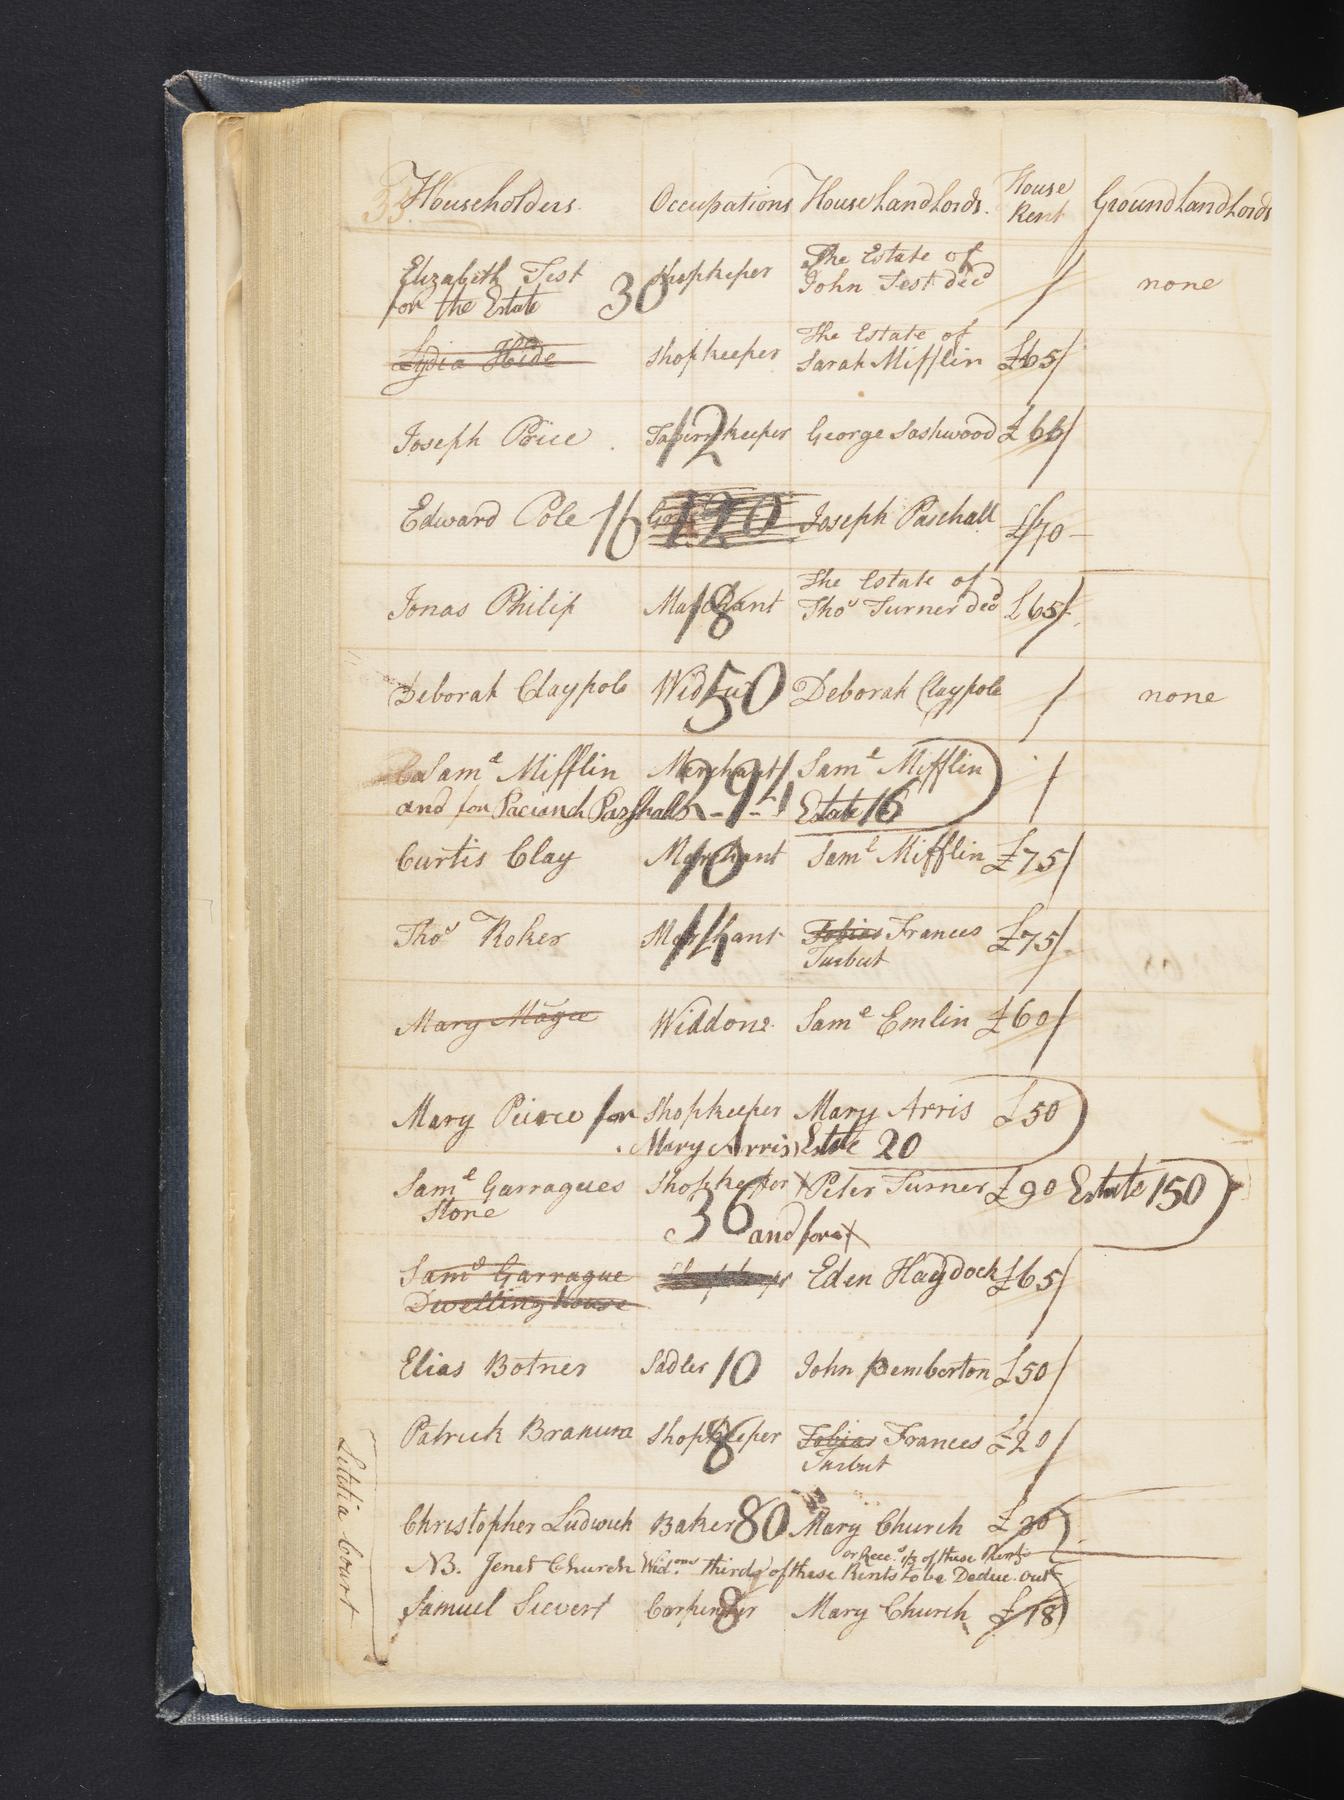 33
Householders. Occupations House Landlords. House Rent Ground Landlords
Elizabeth Test Shopkeper The Estate of
for the Estate 30 John Test decd / none
Lydia Hide Shopkeeper The Estate of
Sarah Mifflin £65/
Joseph Price Tavernkeeper 12 George Sashwood £66/
Edward Cole 16 120 Joseph Paschall £70–
Jonas Philip Marchant 18 The Estate of
Thos Turner decd £65/
Deborah Claypole Widow 50 Deborah Claypole / none
Saml Mifflin Merchant Saml Mifflin /
and for Paschals 294 Estate 16
Curtis Clay Marchant 10 Saml Mifflin £75/
Thos Roker Marchant 14 Tobias Frances £75/
Turbut
Mary Magee Widdone Saml Emlin £60/
Mary Peirce for Shopkeeper Mary Arris £50
Mary Arris Estate 20
Saml Garragues Shopkeeper X Peter Turner £90 Estate 150
Store 36 and for X
Samd Garrague Shopkeeper Eden Haydock £65/
Dwelling house
Elias Botner Sadler 10 John Pemberton £50/
Patrick Branum Shopkeeper 8 Tobias Frances £20/
Turbut
Letitia Court
Christopher Ludwick Baker 80 Mary Church £30
or Rece. 1/3 of these Rents
NB. Jenet Church Wid.ows third of these Rents to be Deduc. out
Samuel Sievert Carpenter 8 Mary Church £18